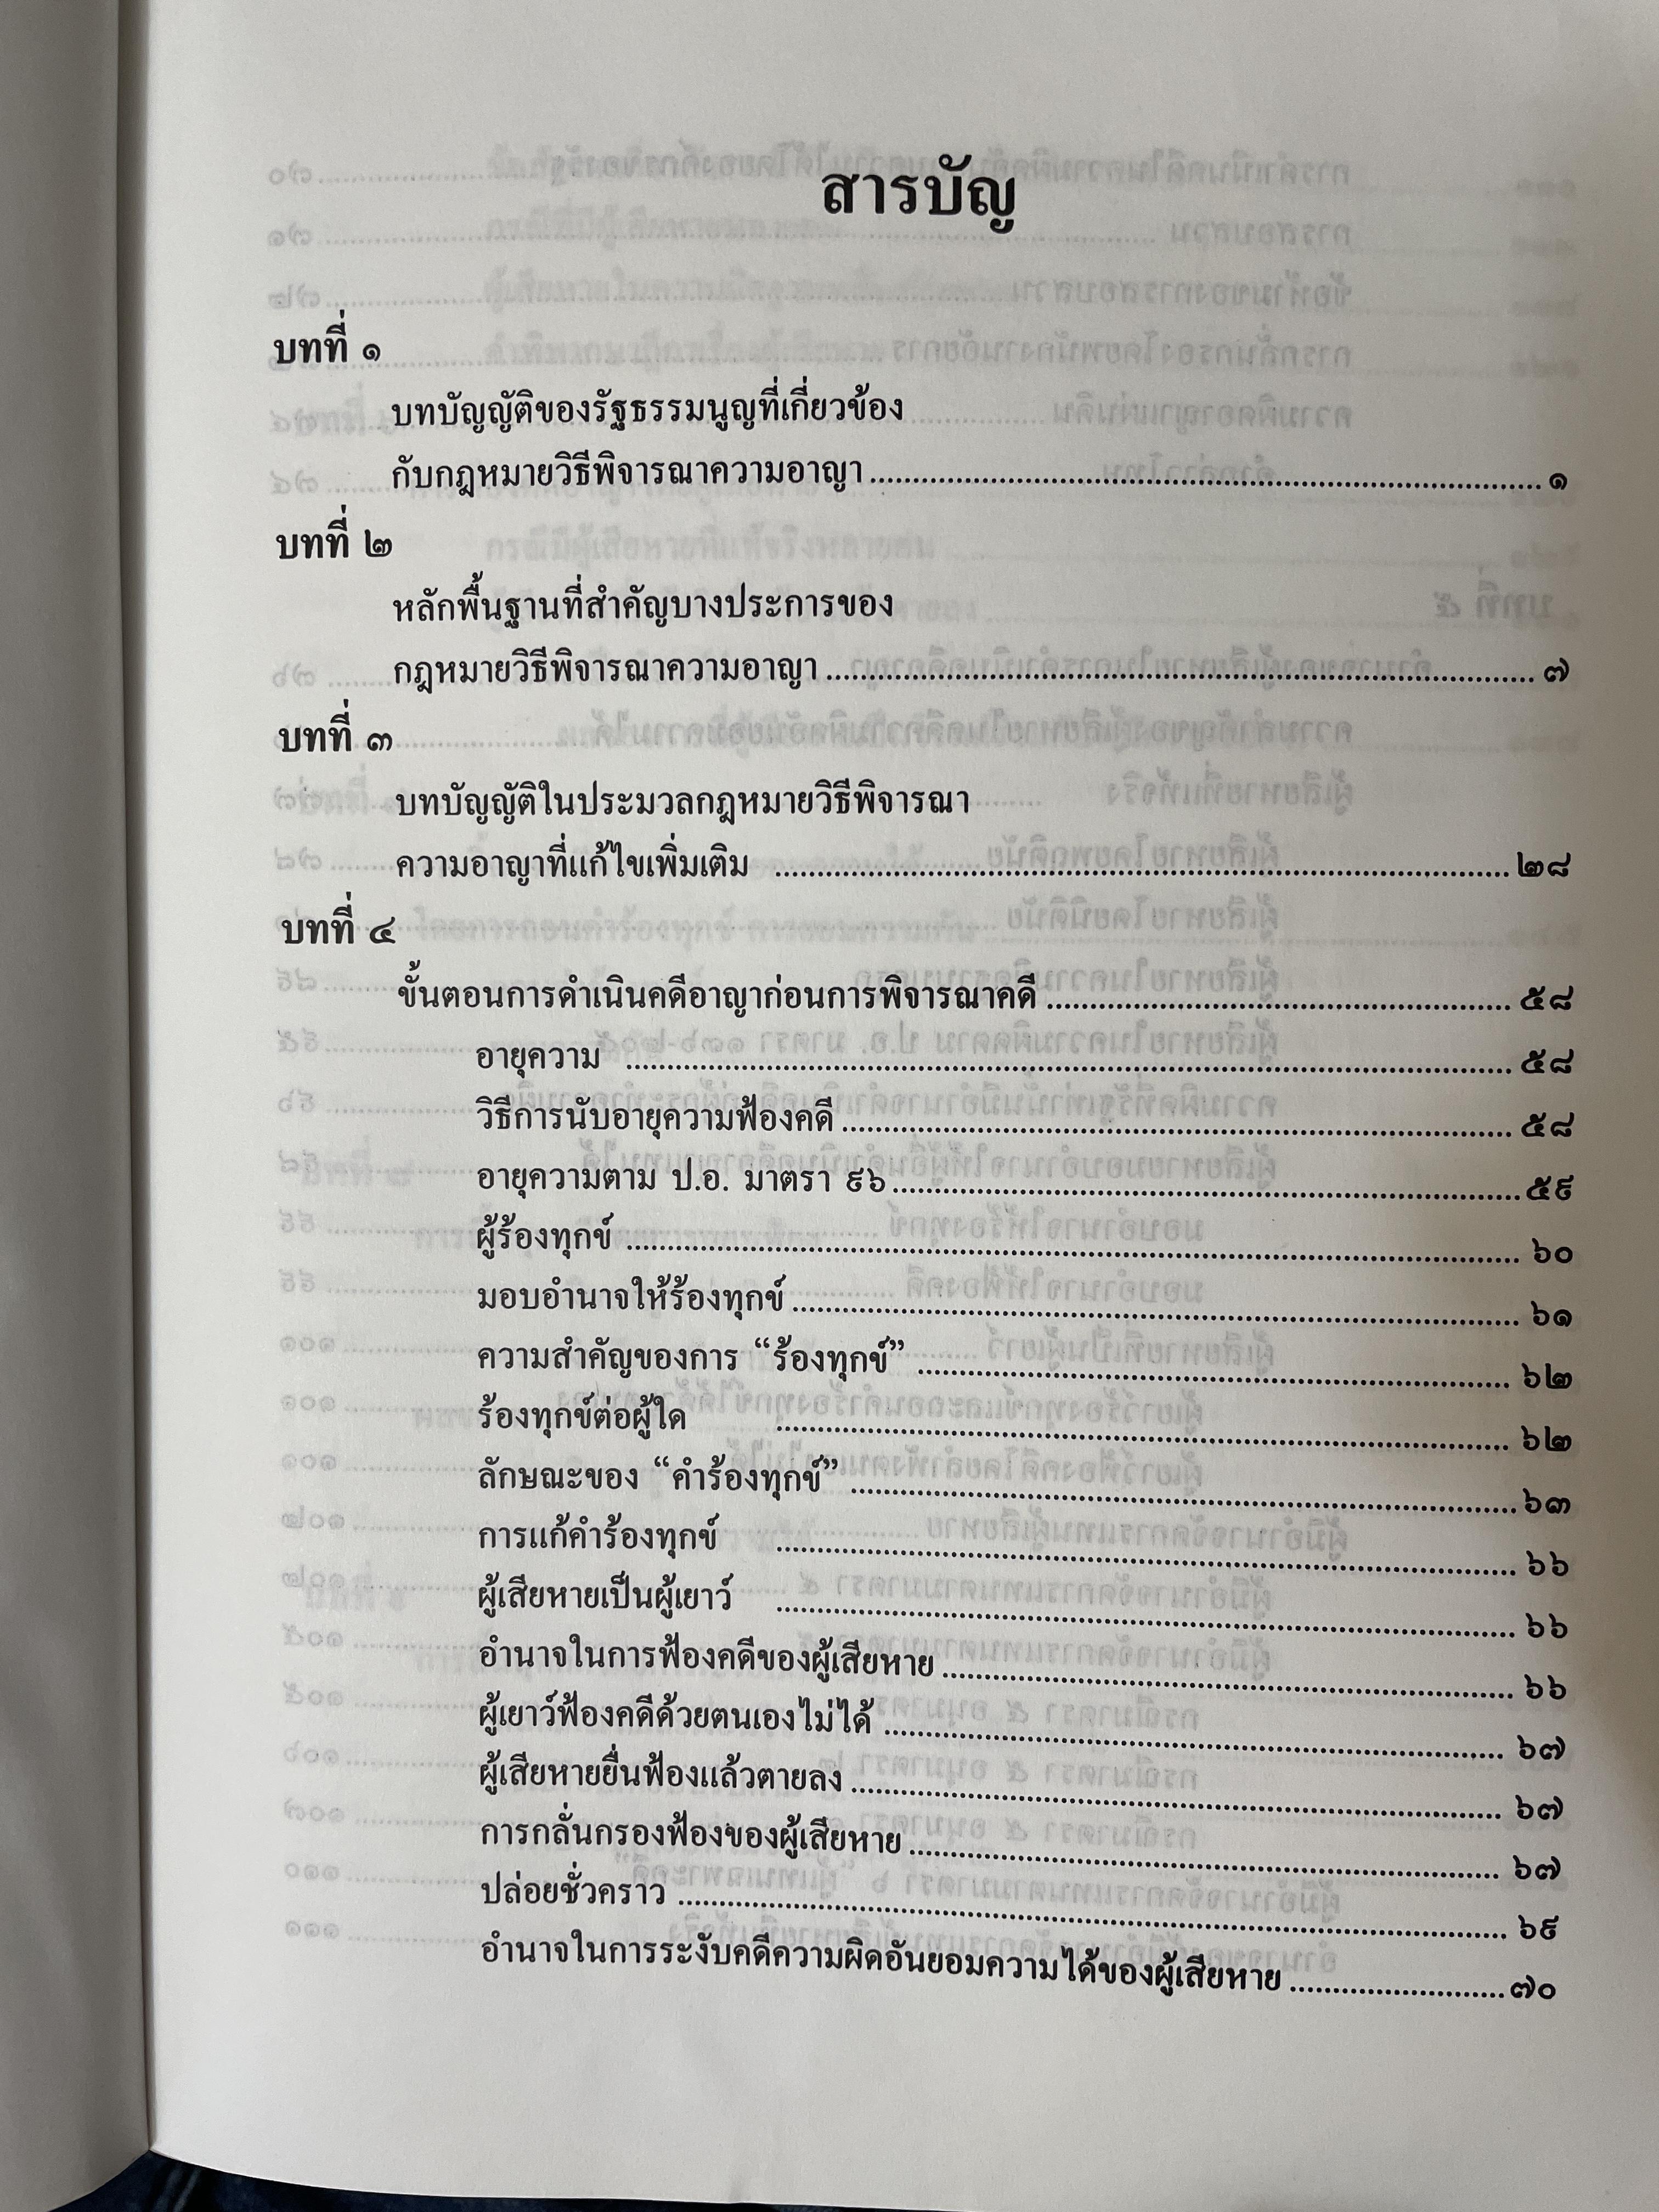 สารบัญ
บทที่ ๑
บทบัญญัติของรัฐธรรมนูญที่เกี่ยวข้อง
กับกฎหมายวิธีพิจารณาความอาญา ๑
บทที่ ๒
หลักพื้นฐานที่สำคัญบางประการของ
กฎหมายวิธีพิจารณาความอาญา ๗
บทที่ ๓
บทบัญญัติในประมวลกฎหมายวิธีพิจารณา
ความอาญาที่แก้ไขเพิ่มเติม ๒๘
บทที่ ๔
ขั้นตอนการดำเนินคดีอาญาก่อนการพิจารณาคดี ๕๘
อายุความ ๕๘
วิธีการนับอายุความฟ้องคดี ๕๘
อายุความตาม ป.อ. มาตรา ๙๖ ๕๙
ผู้ร้องทุกข์ ๖๐
มอบอำนาจให้ร้องทุกข์ ๖๑
ความสำคัญของการ “ร้องทุกข์” ๖๒
ร้องทุกข์ต่อผู้ใด ๖๒
ลักษณะของ “คำร้องทุกข์” ๖๓
การแก้คำร้องทุกข์ ๖๖
ผู้เสียหายเป็นผู้เยาว์ ๖๖
อำนาจในการฟ้องคดีของผู้เสียหาย ๖๖
ผู้เยาว์ฟ้องคดีด้วยตนเองไม่ได้ ๖๗
ผู้เสียหายยื่นฟ้องแล้วตายลง ๖๗
การกลั่นกรองฟ้องของผู้เสียหาย ๖๗
ปล่อยชั่วคราว ๖๙
อำนาจในการระงับคดีความผิดอันยอมความได้ของผู้เสียหาย ๗๐